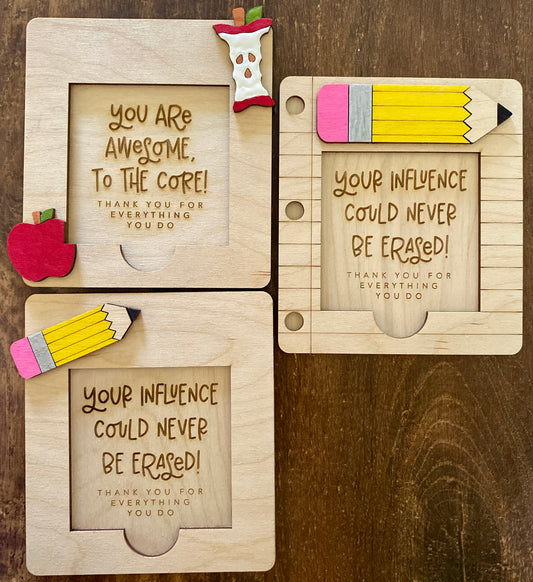 YOU ARE
AWESOME,
TO THE CORE!
THANK YOU FOR
EVERYTHING
YOU DO
YOUR INFLUENCE
COULD NEVER
BE ERASED!
THANK YOU FOR
EVERYTHING
YOU DO
YOUR INFLUENCE
COULD NEVER
BE ERASED!
THANK YOU FOR
EVERYTHING
YOU DO